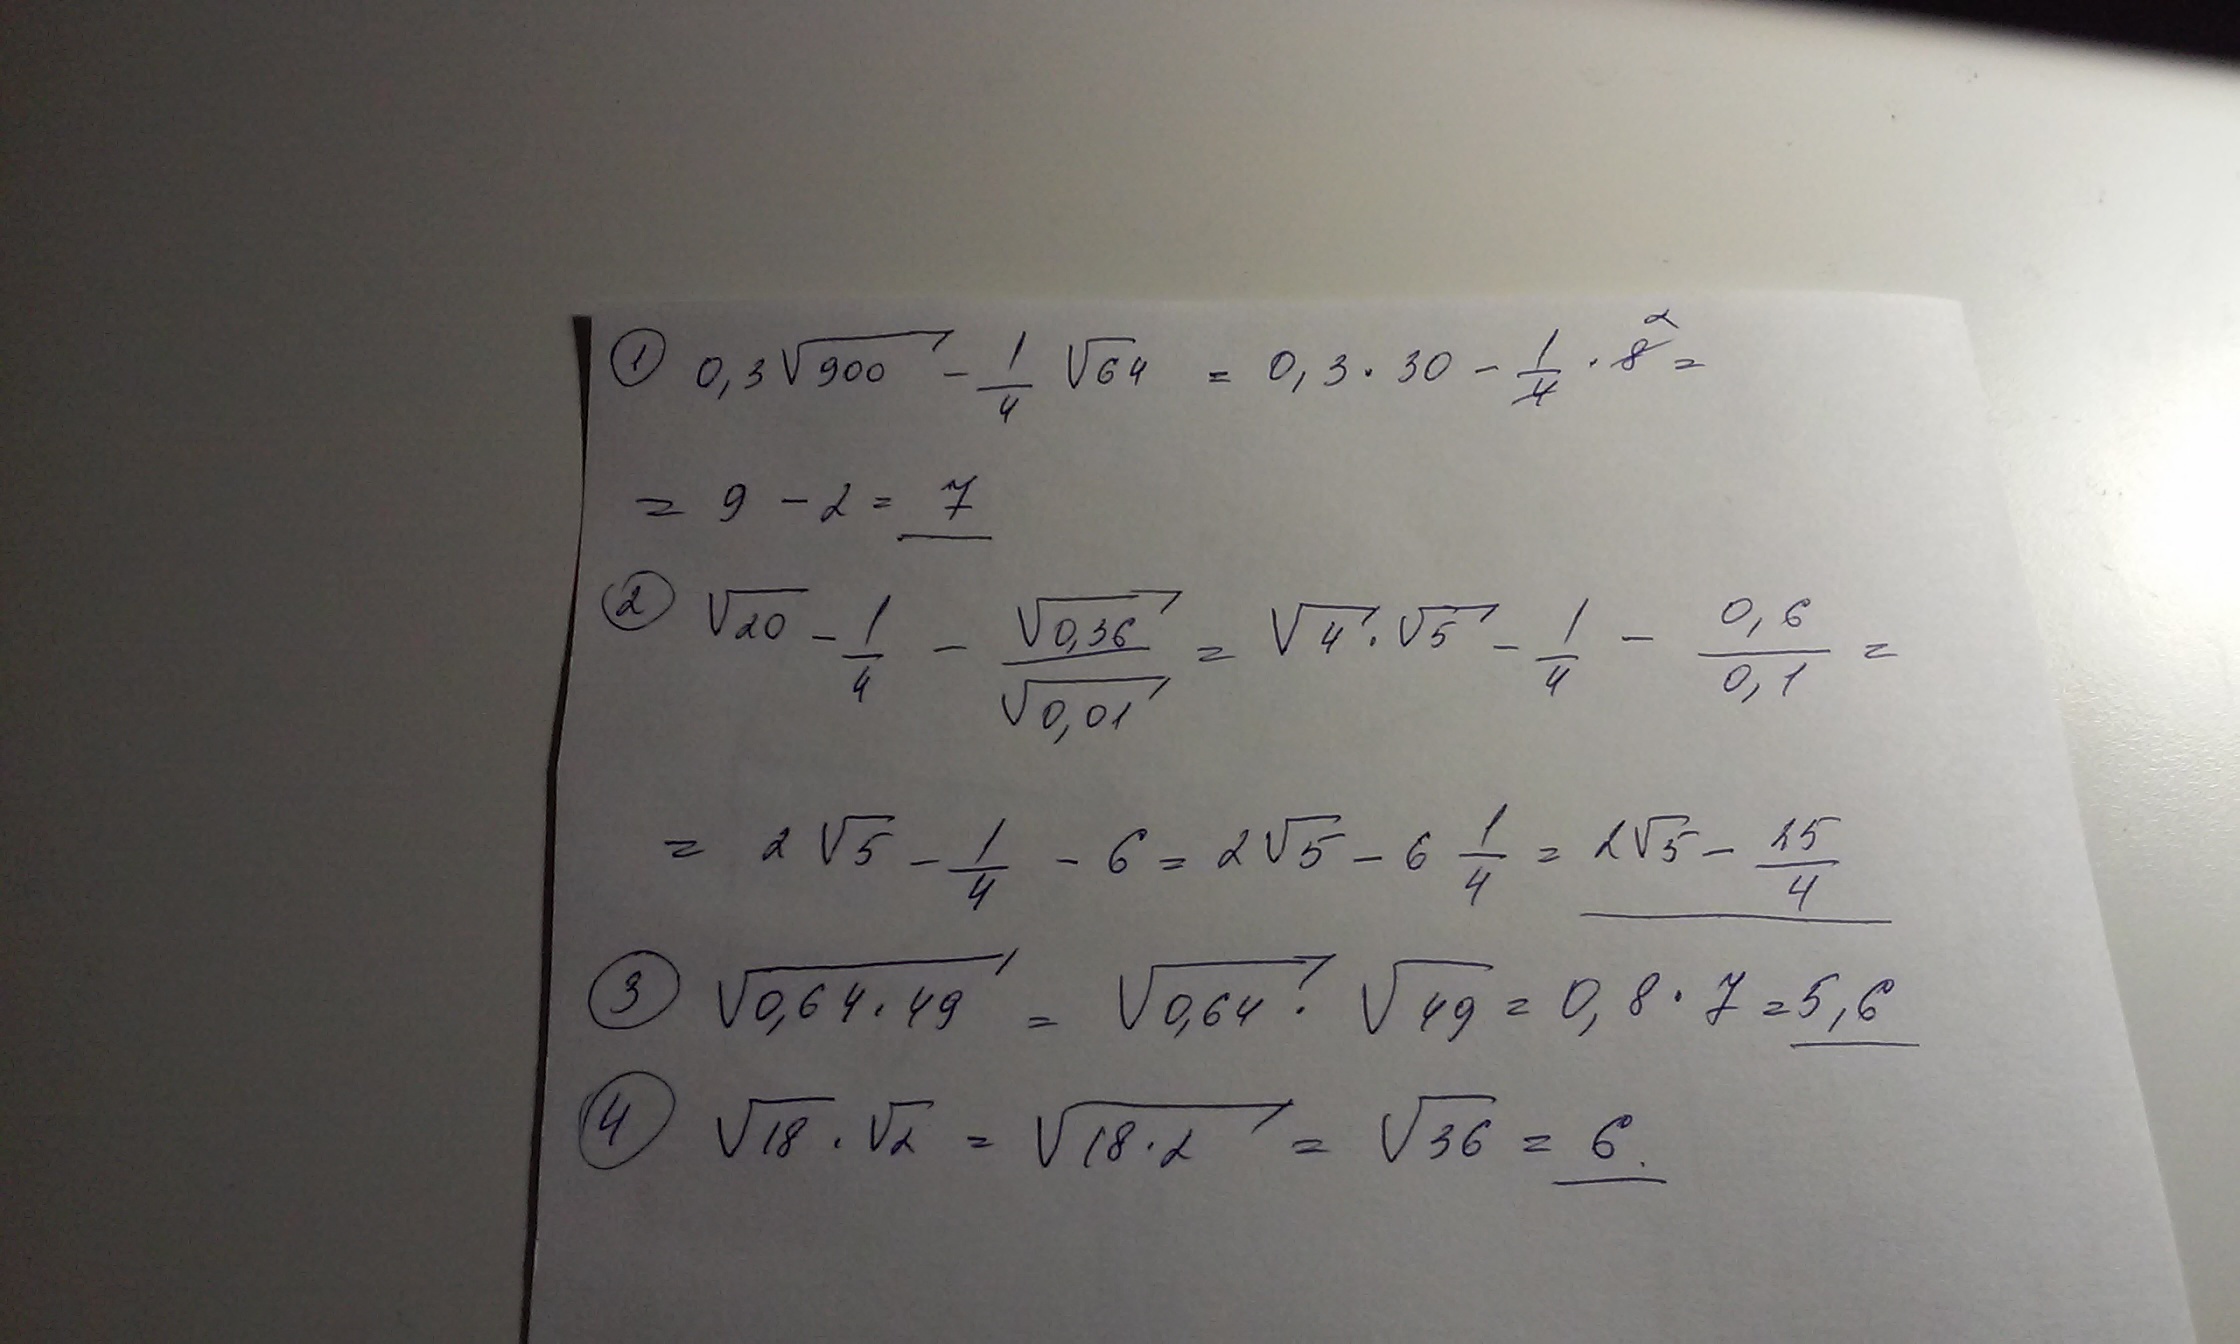 ① 0,3√900 - 1/4 √64 = 0,3 · 30 - 1/4 · 8 2 =
= 9 - 2 = 7
② √20 - 1/4 - √0,36/√0,01 = √4 · √5 - 1/4 - 0,6/0,1 =
= 2√5 - 1/4 - 6 = 2√5 - 6 1/4 = 2√5 - 25/4
③ √0,64 · 49 = √0,64 · √49 = 0,8 · 7 = 5,6
④ √18 · √2 = √18 · 2 = √36 = 6.